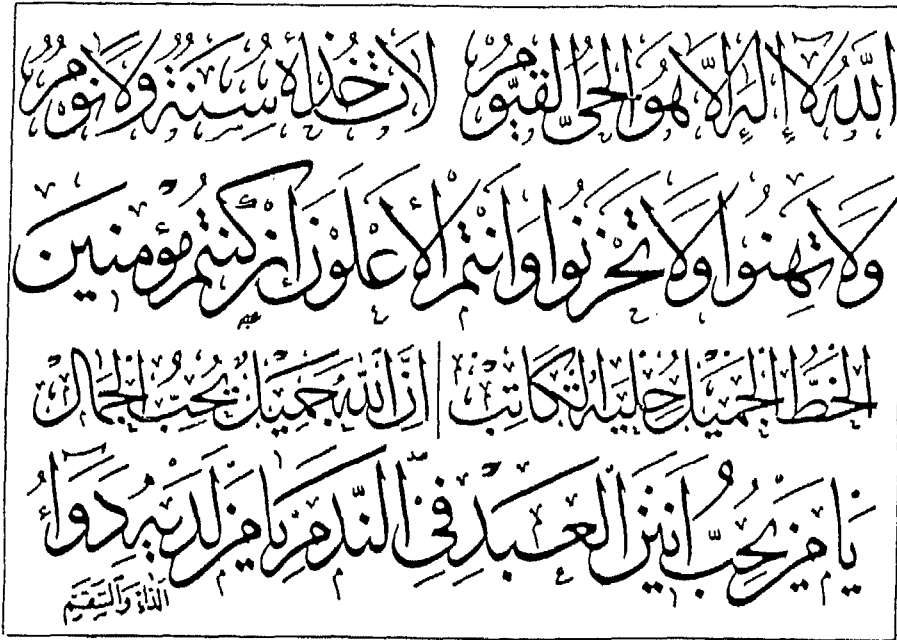 اللَّهُ لَا إِلَهَ إِلَّا هُوَ الْحَيُّ الْقَيُّومُ لَا تَأْخُذُهُ سِنَةٌ وَلَا نَوْمٌ
وَلَا تَهِنُوا وَلَا تَحْزَنُوا وَأَنْتُمُ الْأَعْلَوْنَ إِنْ كُنْتُمْ مُؤْمِنِينَ
الخَطُّ الجَمِيلُ حِلْيَةُ الكَاتِبْ إِنَّ اللَّهَ جَمِيلٌ يُحِبُّ الجَمَالْ
يَا مَنْ يُحِبُّ أَنِينَ العَبْدِ فِي النَّدَمِ يَا مَنْ لَدَيْهِ دَوَاءُ
الدَّاءِ وَالسَّقَمِ